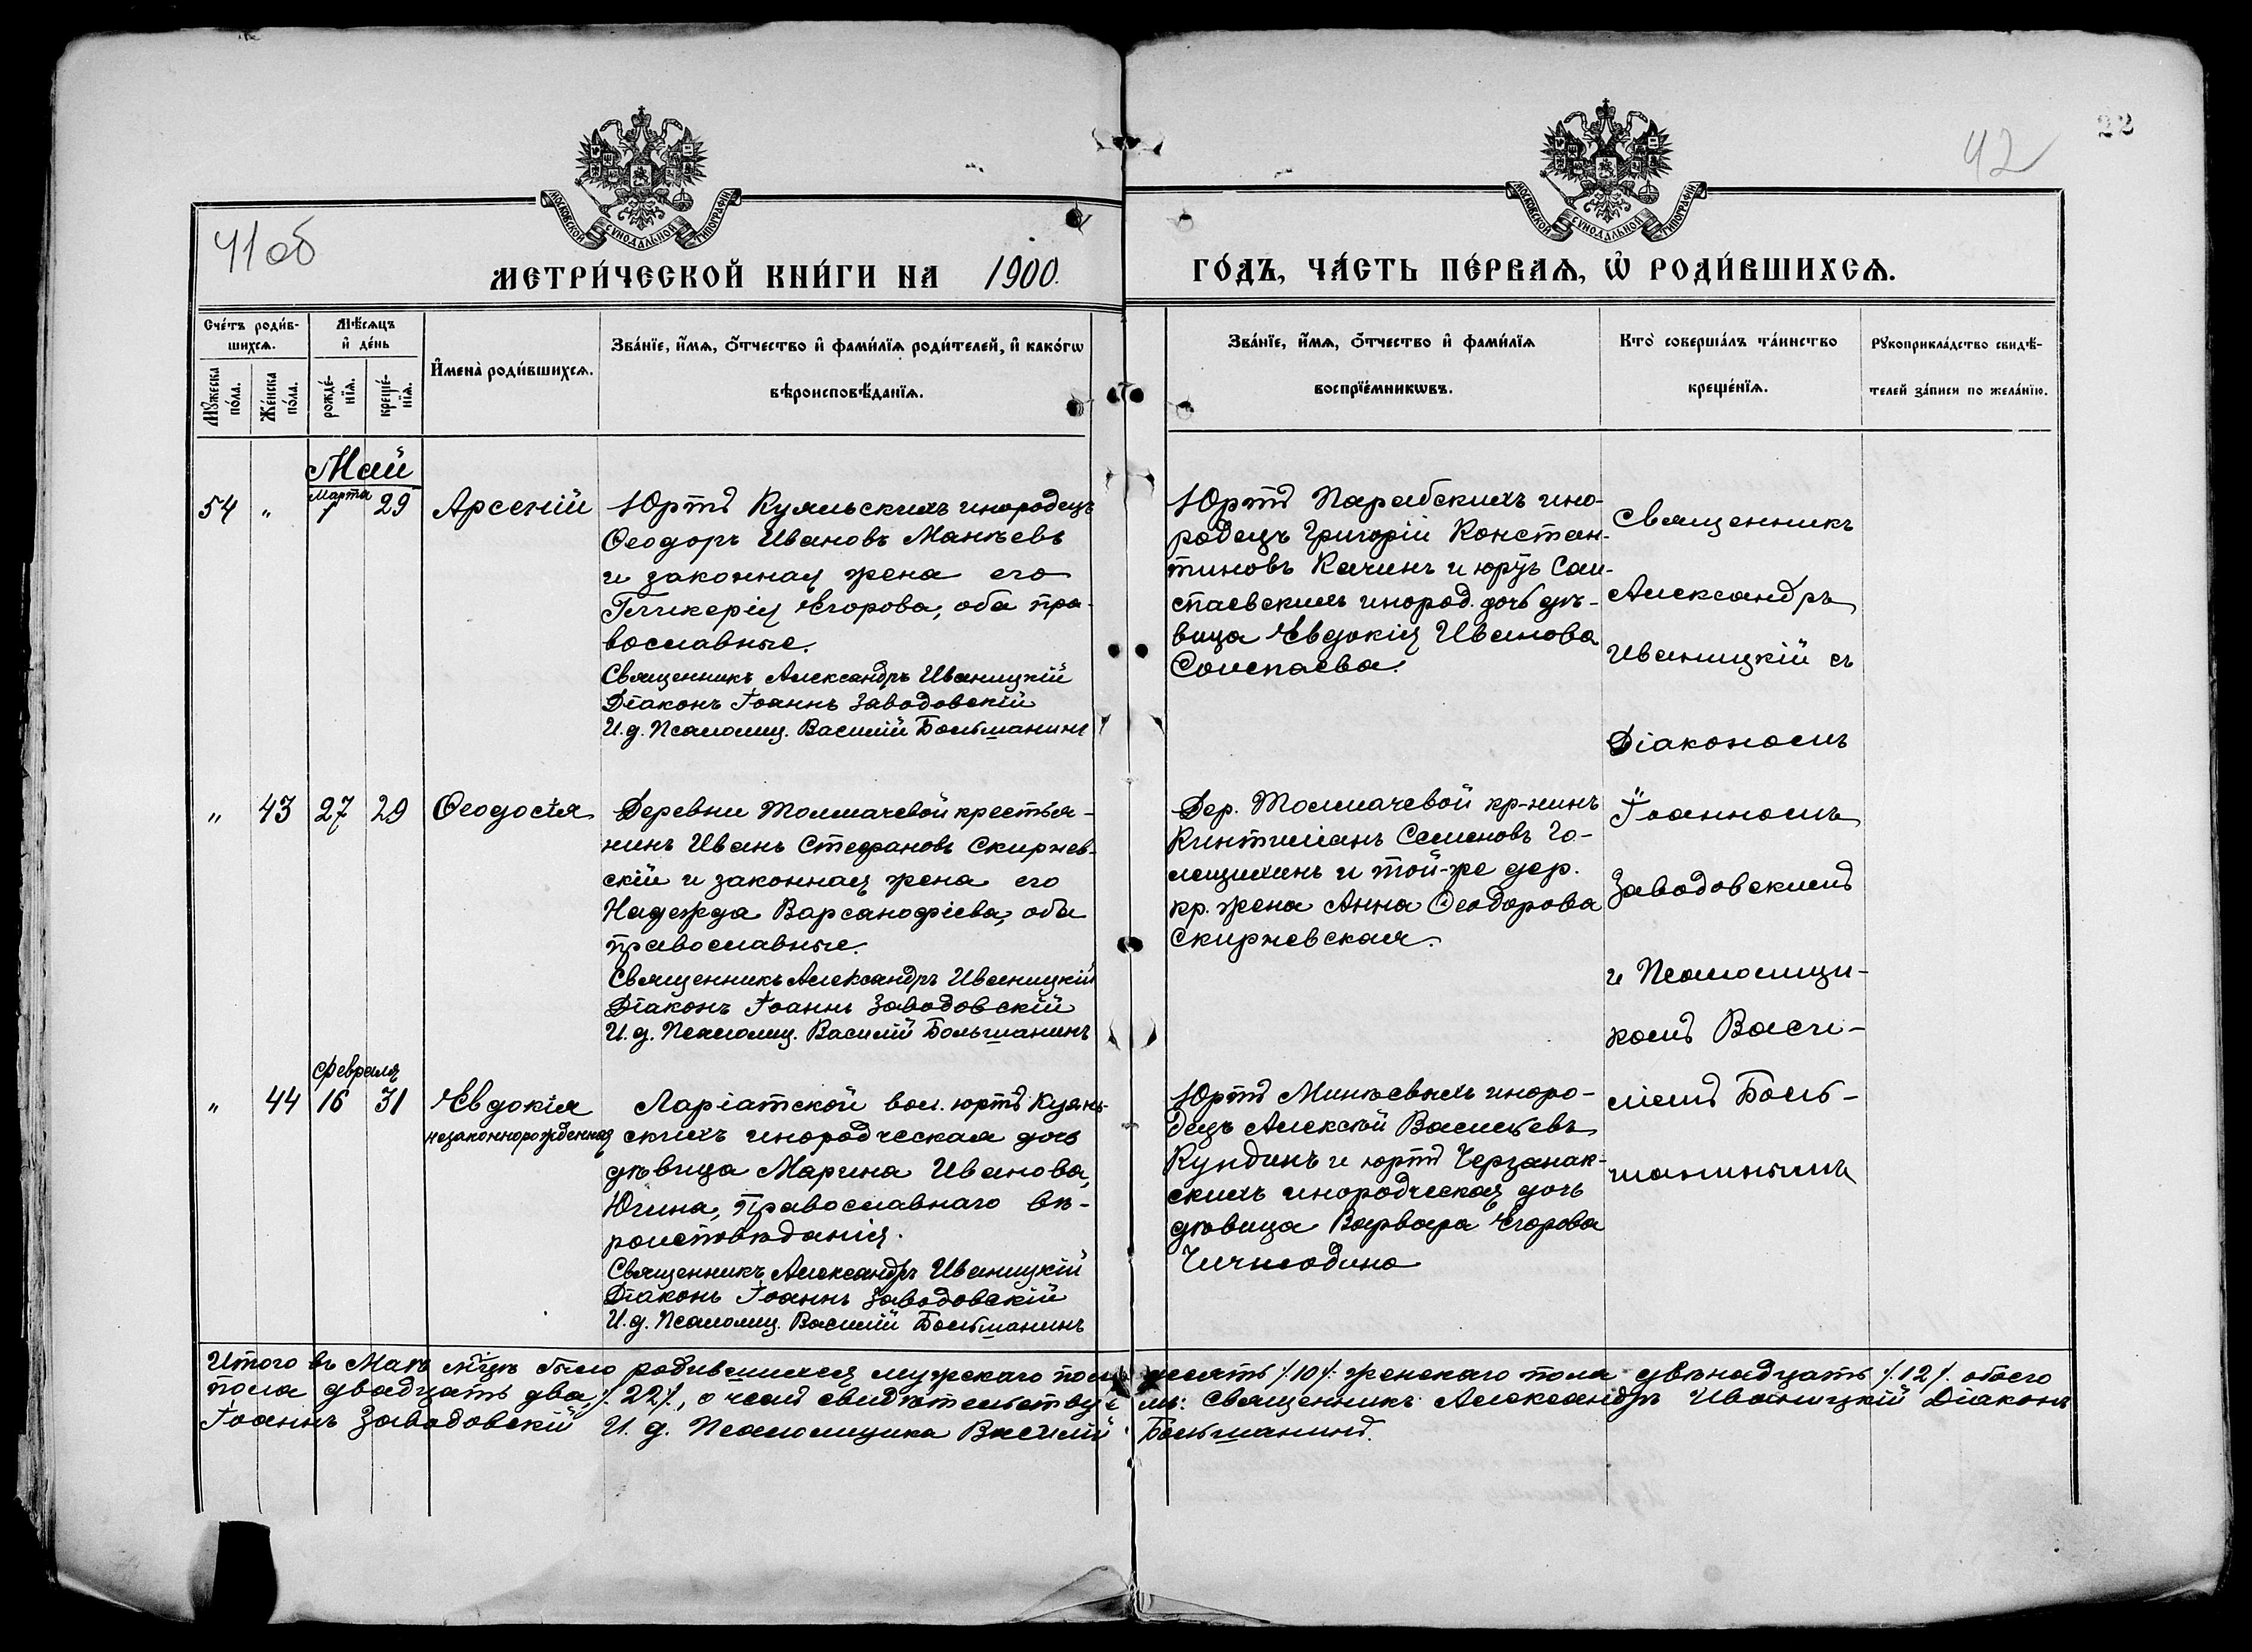 22
42
41об
МОСКОВСКОЙ СѴНОДАЛЬНОЙ ТИПОГРАФІИ
МОСКОВСКОЙ СѴНОДАЛЬНОЙ ТИПОГРАФІИ
МЕТРИ́ЧЕСКОЙ КНИ́ГИ НА 1900.
ГО́ДЪ, ЧА́СТЬ ПЕ́РВАѦ, Ѡ҆ РОДИ́ВШИХСѦ.
Сче́тъ роди́в-
шихсѧ.
Мꙋ́жеска по́ла.
Же́нска по́ла.
Мѣ́сѧцъ
и҆ де́нь
рожде́-нїѧ.
креще́-нїѧ.
И҆мена̀ роди́вшихсѧ.
Зва́нїе, и҆́мѧ, ѻ҆́тчество и҆ фами́лїѧ роди́телей, и҆ како́гѡ
вѣроисповѣ́данїѧ.
Зва́нїе, и҆́мѧ, ѻ҆́тчество и҆ фами́лїѧ
воспрїе́мникѡвъ.
Кто̀ соверша́лъ та́инство
креще́нїѧ.
Рꙋкоприкла́дство свидѣ́-
телей за́писи по жела́нїю.
Май
54 " Марта 1 29 Арсеній
Юртъ Куяльскихъ инородецъ
Ѳеодоръ Ивановъ Манѣевъ
и законная жена его
Гликерія Егорова, оба пра-
вославные.
Священникъ Александръ Иваницкій
Діаконъ Іоаннъ Заводовскій
И. д. Псаломщ. Василій Большанинъ
Юртъ Парабскихъ ино-
родецъ Григорій Констан-
тиновъ Качинъ и юртъ Саи-
спаевскихъ инород. дочь дѣ-
вица Евдокія Иванова
Соиспаева.
" 43 27 29 Ѳеодосія
Деревни Толмачевой крестья-
нинъ Иванъ Стефановъ Скирнев-
скій и законная жена его
Надежда Варсанофіева, оба
православные.
Священникъ Александръ Иваницкій
Діаконъ Іоаннъ Заводовскій
И. д. Псаломщ. Василій Большанинъ
Дер. Толмачевой кр-нинъ
Кинтиліанъ Семеновъ Го-
лещихинъ и той-же дер.
кр. жена Анна Ѳеодорова
Скирневская.
" 44 Февраля 16 31 Евдокія
незаконнорожденная
Ларіатской вол. юртъ Куяль-
скихъ инородческая дочь
дѣвица Марина Иванова
Югина, православнаго вѣ-
роисповѣданія.
Священникъ Александръ Иваницкій
Діаконъ Іоаннъ Заводовскій
И. д. Псаломщ. Василій Большанинъ
Юртъ Минѣевыхъ иноро-
децъ Алексѣй Васильевъ
Кундинъ и юртъ Черзанак-
скихъ инородческая дочь
дѣвица Варвара Егорова
Священникъ
Александръ
Иваницкій съ
Діакономъ
Іоанномъ
Заводовскимъ
и Псаломщи-
комъ Васи-
ліемъ Боль-
шанинымъ
Итого въ Маѣ м-цѣ было родившихся мужскаго пола десять /.10/. женскаго пола двѣнадцать /.12/. обоего
пола двадцать два /.22/., о чемъ свидѣтельствуемъ: Священникъ Александръ Иваницкій Діаконъ
Іоаннъ Заводовскій И. д. Псаломщика Василій Большанинъ.